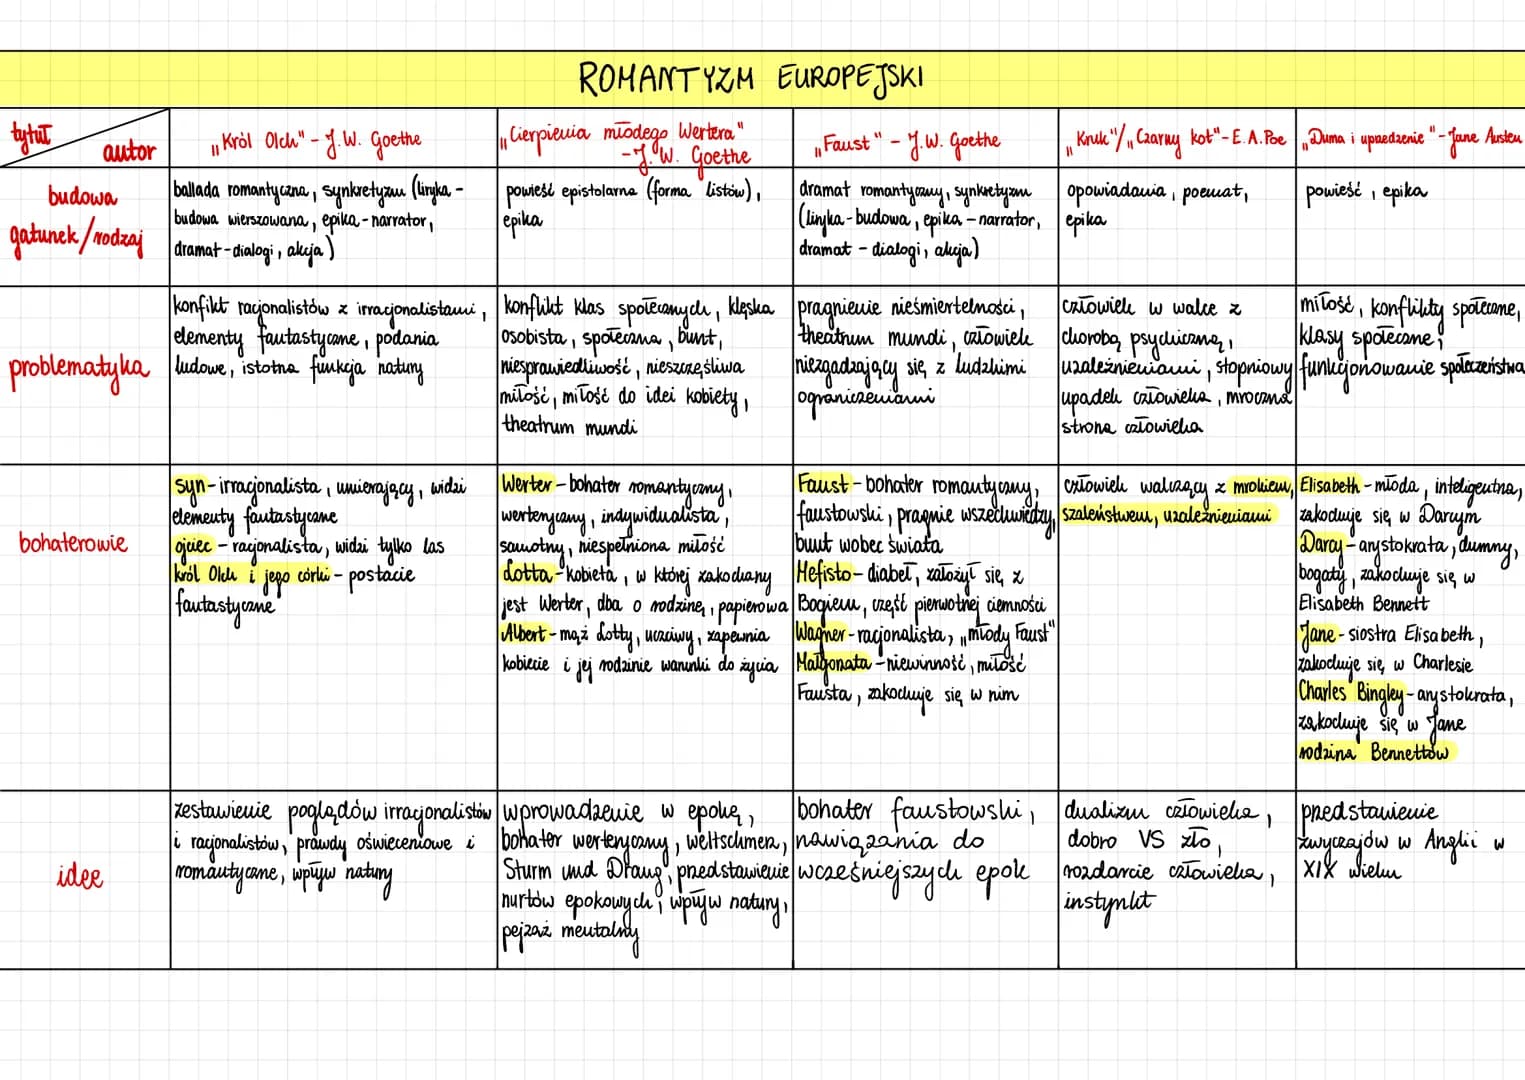 ROMANTYZM EUROPEJSKI
tytuł
autor
„Król Olch" - J.W. Goethe
„Cierpienia młodego Wertera"
- J.W. Goethe
„Faust" - J.W. Goethe
„Kruk"/„Czarny kot" - E.A.Poe
„Duma i uprzedzenie" - Jane Austen
budowa
gatunek/rodzaj
ballada romantyczna, synkretyzm (liryka -
budowa wierszowana, epika - narrator,
dramat - dialogi, akcja)
powieść epistolarna (forma listów),
epika
dramat romantyczny, synkretyzm
(liryka - budowa, epika - narrator,
dramat - dialogi, akcja)
opowiadania, poemat,
epika
powieść, epika
problematyka
konfikt racjonalistów z irracjonalistami,
elementy fantastyczne, podania
ludowe, istotna funkcja natury
konflikt klas społecznych, klęska
osobista, społeczna, bunt,
niesprawiedliwość, nieszczęśliwa
miłość, miłość do idei kobiety,
theatrum mundi
pragnienie nieśmiertelności,
theatrum mundi, człowiek
niezgadzający się z ludzkimi
ograniczeniami
człowiek w walce z
chorobą psychiczną,
uzależnieniami, stopniowy
upadek człowieka, mroczna
strona człowieka
miłość, konflikty społeczne,
klasy społeczne,
funkcjonowanie społeczeństwa
bohaterowie
syn - irracjonalista, umierający, widzi
elementy fantastyczne
ojciec - racjonalista, widzi tylko las
król Olch i jego córki - postacie
fantastyczne
Werter - bohater romantyczny,
werteryczny, indywidualista,
samotny, niespełniona miłość
Lotta - kobieta, w której zakochany
jest Werter, dba o rodzinę, papierowa
Albert - mąż Lotty, uczciwy, zapewnia
kobiecie i jej rodzinie warunki do życia
Faust - bohater romantyczny,
faustowski, pragnie wszechwiedzy,
bunt wobec świata
Mefisto - diabeł, założył się z
Bogiem, część pierwotnej ciemności
Wagner - racjonalista, „młody Faust"
Małgorzata - niewinność, miłość
Fausta, zakochuje się w nim
człowiek walczący z mrokiem,
szaleństwem, uzależnieniami
Elisabeth - młoda, inteligentna,
zakochuje się w Darcym
Darcy - arystokrata, dumny,
bogaty, zakochuje się w
Elisabeth Bennett
Jane - siostra Elisabeth,
zakochuje się w Charlesie
Charles Bingley - arystokrata,
zakochuje się w Jane
rodzina Bennettów
idee
zestawienie poglądów irracjonalistów
i racjonalistów, prawdy oświeceniowe i
romantyczne, wpływ natury
wprowadzenie w epokę,
bohater werteryczny, weltschmerz,
Sturm und Drang, przedstawienie
nurtów epokowych, wpływ natury,
pejzaż mentalny
bohater faustowski,
nawiązania do
wcześniejszych epok
dualizm człowieka,
dobro VS zło,
rozdarcie człowieka,
instynkt
przedstawienie
zwyczajów w Anglii w
XIX wieku